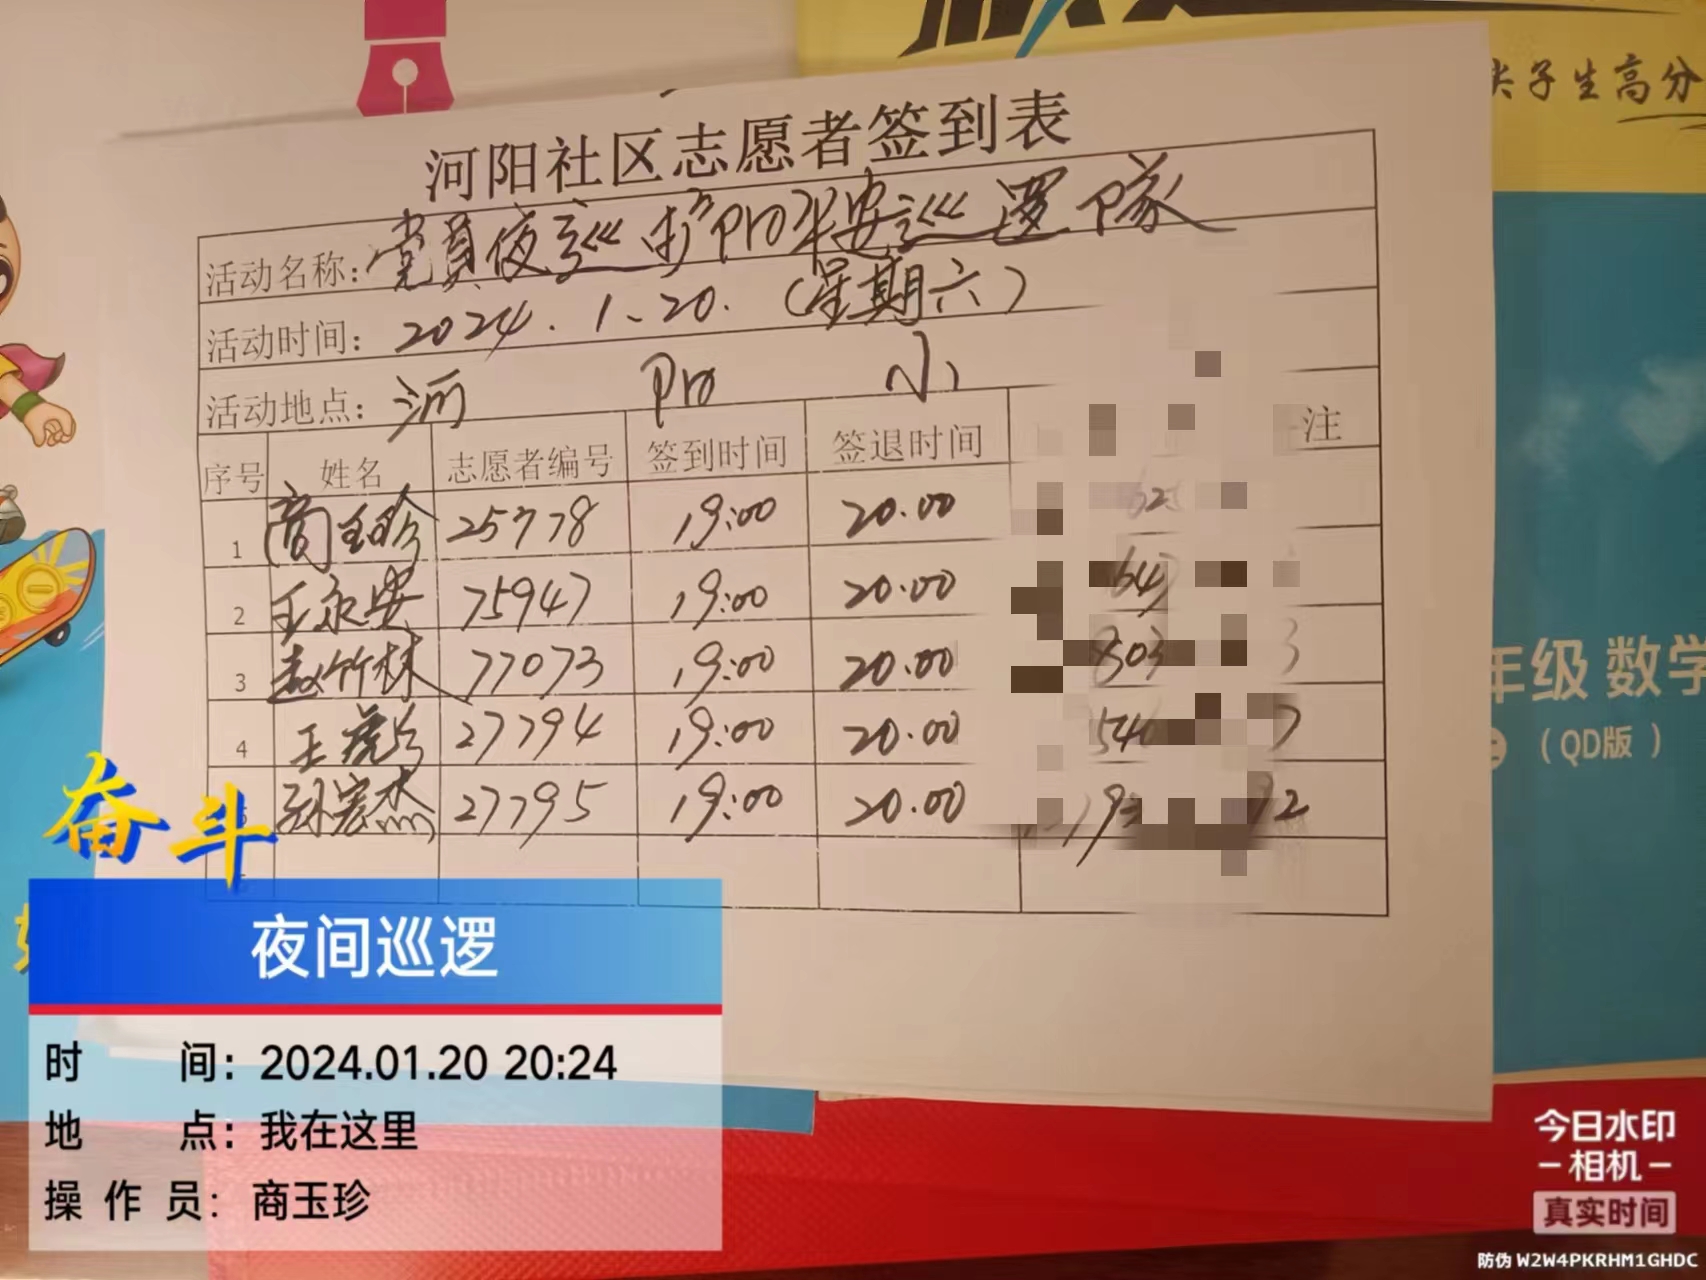 尖子生高分
河阳社区志愿者签到表
活动名称：党员夜巡 护阳平安巡逻队
活动时间：2024.1.20.（星期六）
活动地点：河 阳 小
序号 姓名 志愿者编号 签到时间 签退时间 注
1 商玉珍 25778 19:00 20.00
2 王永安 75947 19:00 20.00
3 赵竹林 77073 19:00 20.00
4 王 27794 19:00 20.00
孙宏杰 27795 19:00 20.00
年级 数学
（QD版）
奋斗
夜间巡逻
时 间：2024.01.20 20:24
地 点：我在这里
操作员：商玉珍
今日水印
-相机-
真实时间
防伪 W2W4PKRHM1GHDC